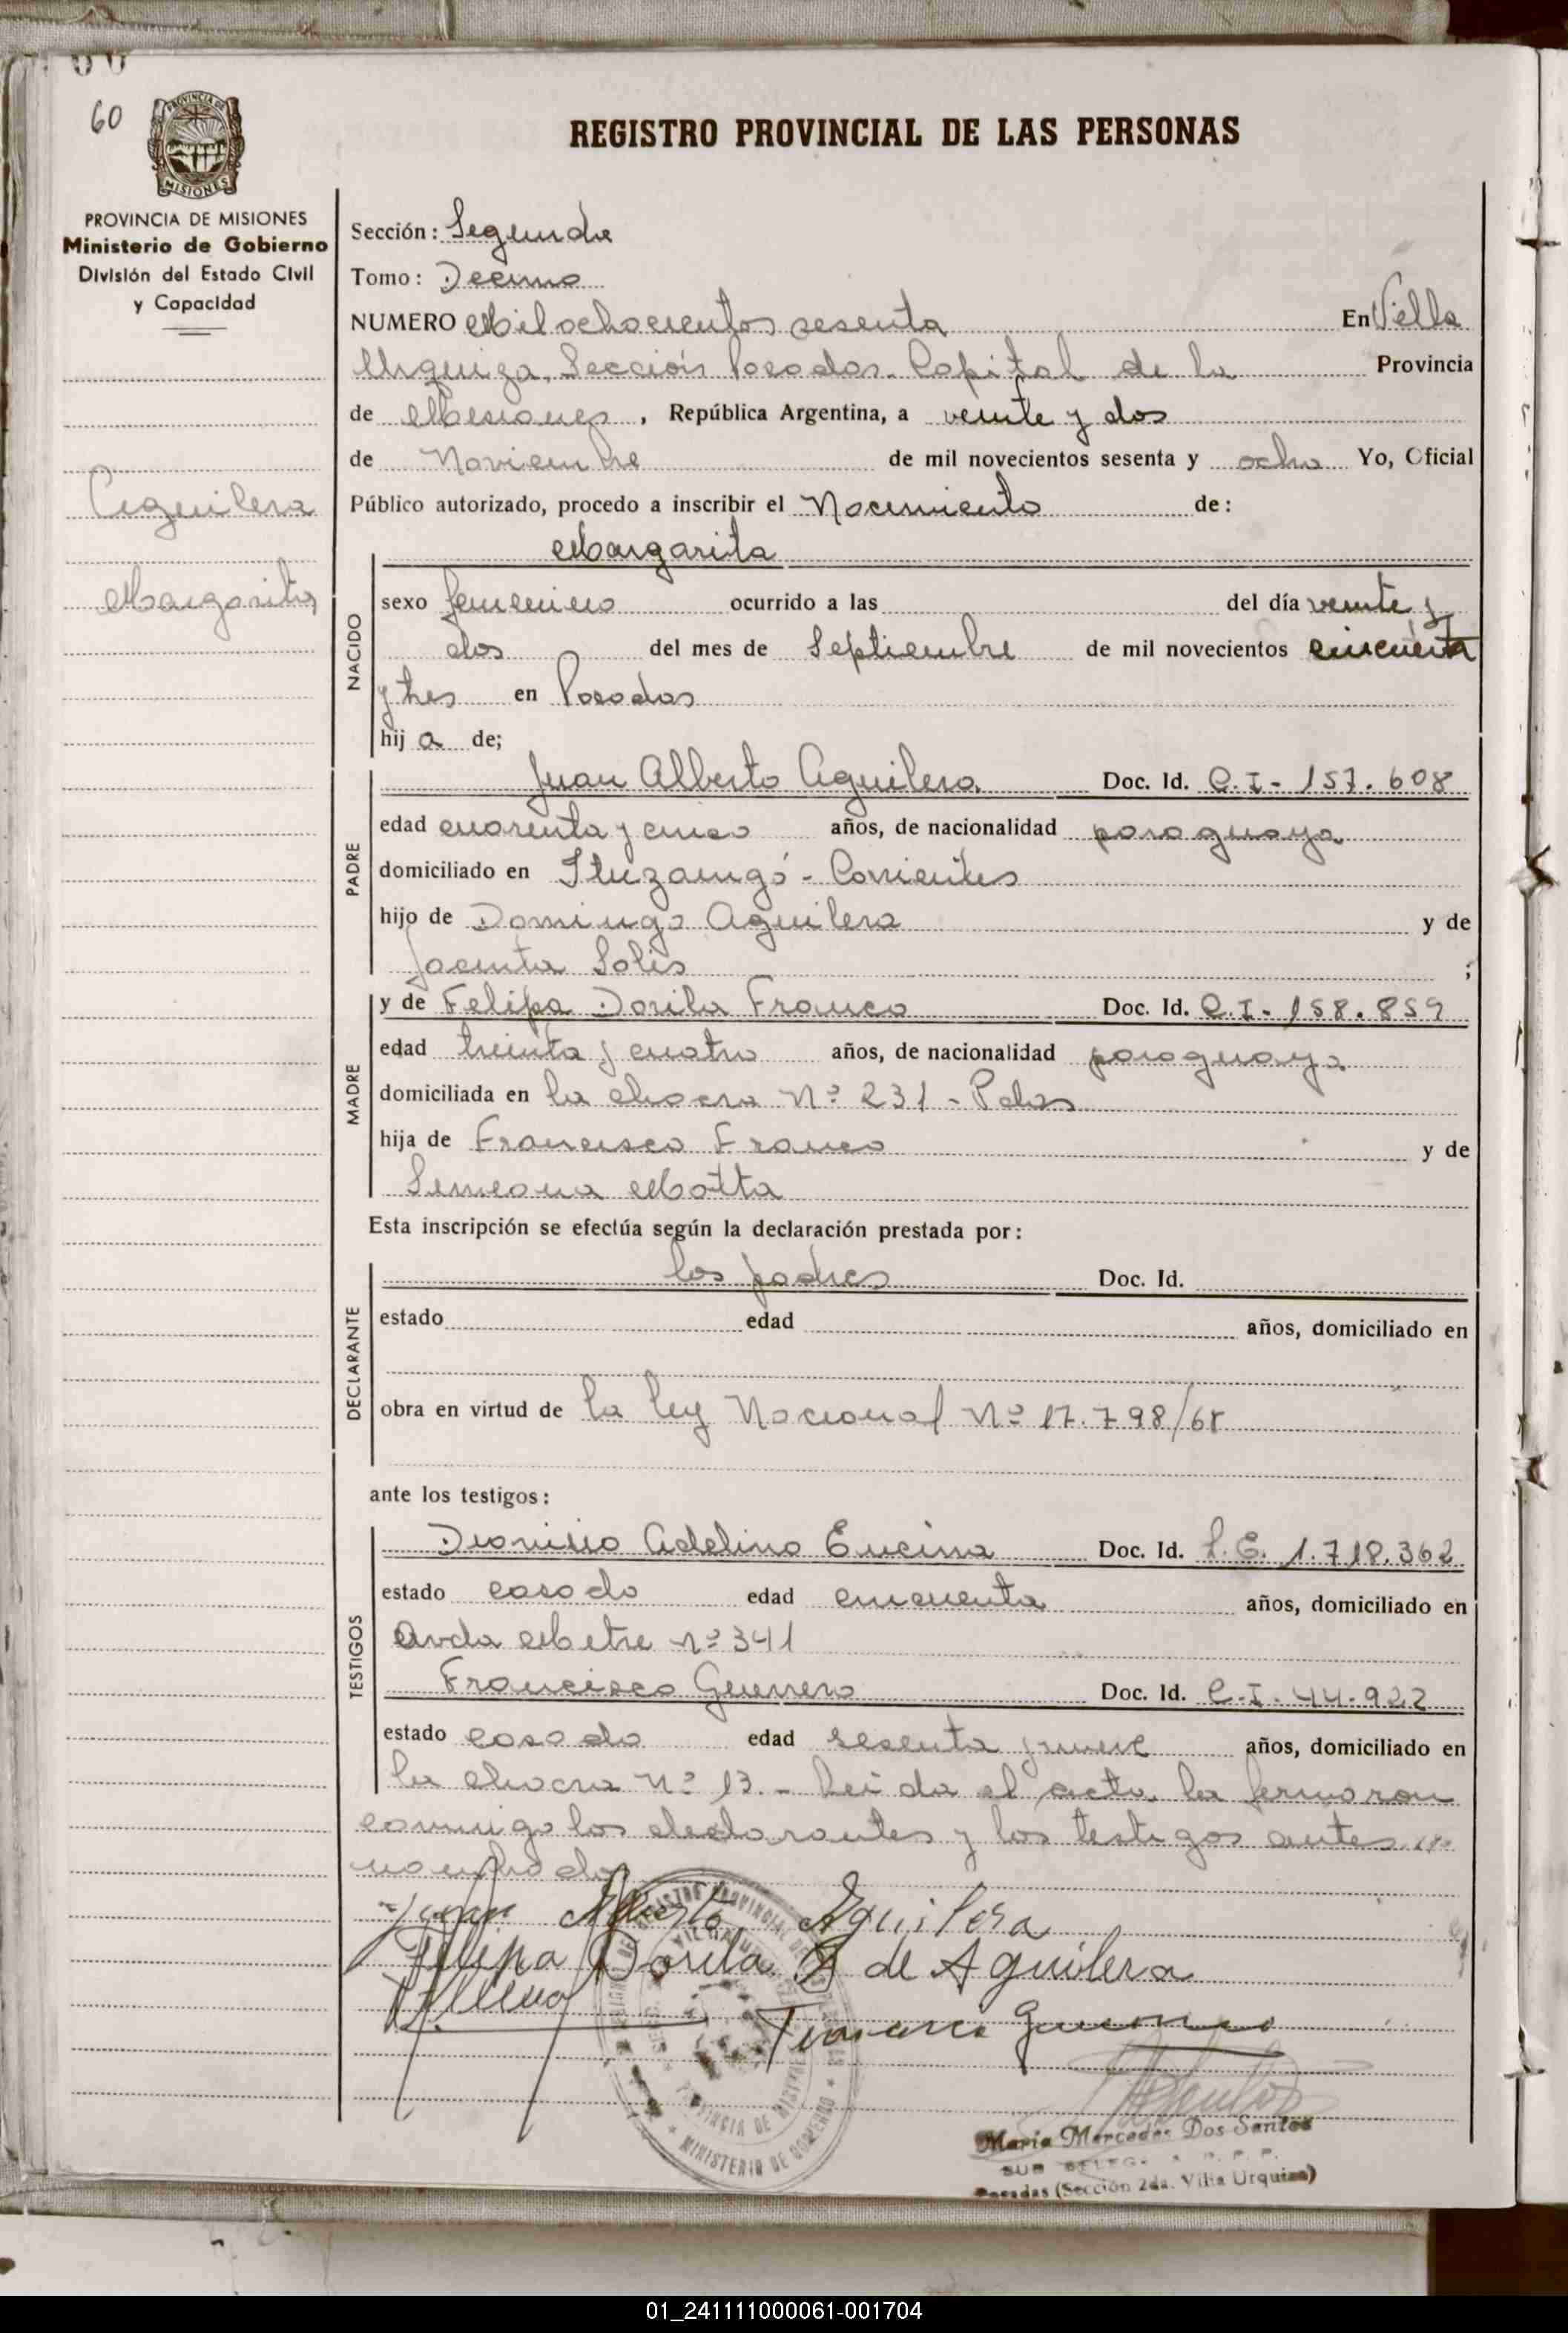 60
PROVINCIA DE
MISIONES
PROVINCIA DE MISIONES
Ministerio de Gobierno
División del Estado Civil
y Capacidad
Aguilera
Margarita
REGISTRO PROVINCIAL DE LAS PERSONAS
Sección: Segunda
Tomo: Decimo
NUMERO Mil ochocientos sesenta En Villa
Urquiza, Sección Posadas. Capital de la Provincia
de Misiones, República Argentina, a veinte y dos
de Noviembre de mil novecientos sesenta y ocho Yo, Oficial
Público autorizado, procedo a inscribir el Nacimiento de:
Margarita
NACIDO
sexo femenino ocurrido a las del día veinte y
dos del mes de Septiembre de mil novecientos cincuenta
y tres en Posadas
hija de;
PADRE
Juan Alberto Aguilera Doc. Id. C.I- 157.608
edad cuarenta y cinco años, de nacionalidad paraguaya
domiciliado en Ituzaingó - Corrientes
hijo de Domingo Aguilera y de
Jacinta Solis ;
MADRE
y de Felipa Dorila Franco Doc. Id. C.I- 158.859
edad treinta y cuatro años, de nacionalidad paraguaya
domiciliada en la chacra Nº 231 - Pdas
hija de Francisco Franco y de
Simeona Motta
Esta inscripción se efectúa según la declaración prestada por:
DECLARANTE
los padres Doc. Id.
estado edad años, domiciliado en
obra en virtud de la ley Nacional Nº 17.798/68
ante los testigos:
TESTIGOS
Dionisio Adelino Encina Doc. Id. L.E. 1.718.362
estado casado edad cincuenta años, domiciliado en
Avda Mitre nº 341
Francisco Guerrero Doc. Id. C.I. 44.922
estado casado edad sesenta y nueve años, domiciliado en
la chacra Nº 13.- Leida el acta, la firmaron
conmigo los declarantes y los testigos antes
nombrados
Juan Alberto Aguilera
Felipa Dorila F de Aguilera
Francisco Guerrero
REGISTRO PROVINCIAL DE LAS
PROVINCIA DE MISIONES
MINISTERIO DE GOBIERNO
María Mercedes Dos Santos
SUB DELEG.
Posadas (Sección 2da. Villa Urquiza)
01_241111000061-001704